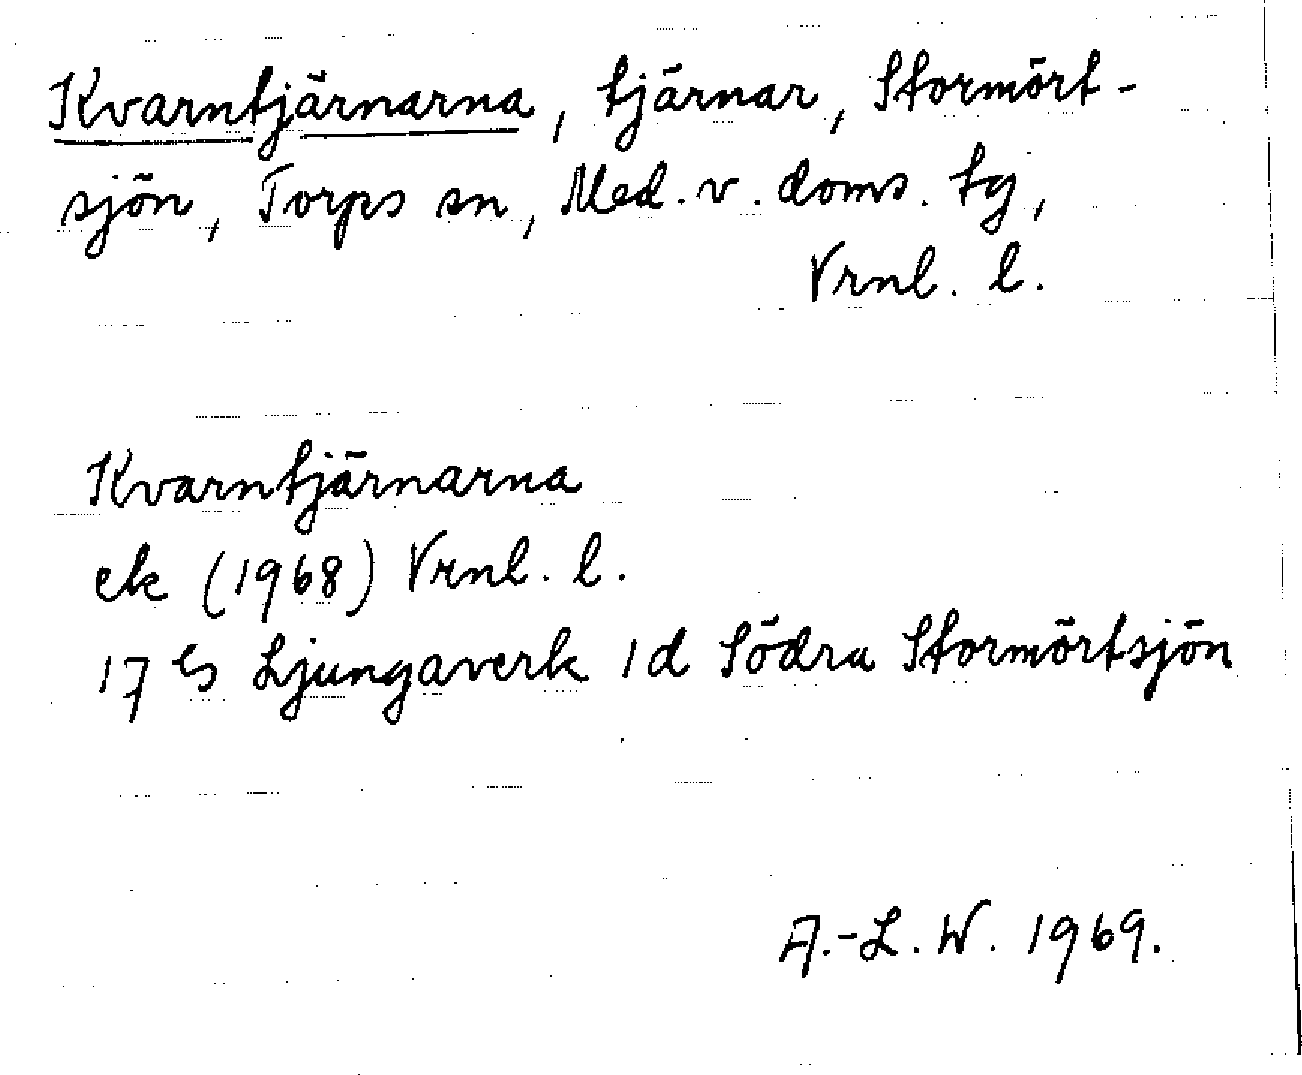 Kvarntjärnarna, tjärnar, Stormört-
sjön, Torps sn, Med. v. doms. tg,
Vrnl. l.
Kvarntjärnarna
ek (1968) Vrnl. l.
17 G Ljungaverk 1d Södra Stormörtsjön
A.-L. W. 1969.